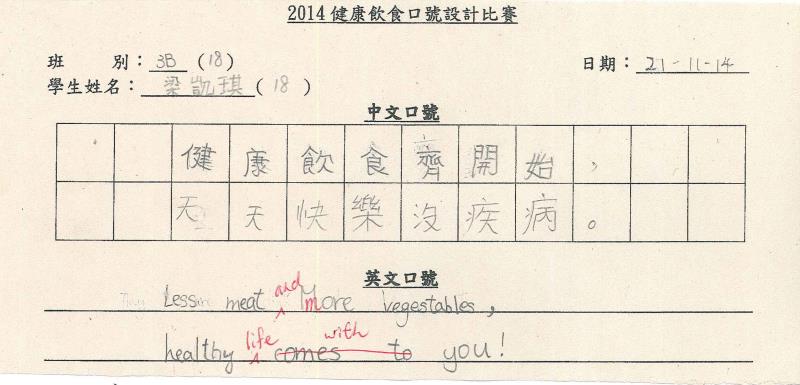 2014健康飲食口號設計比賽
班 別：3B (18) 日期：21-11-14
學生姓名：梁凱琪(18)
中文口號
健康飲食齊開始，
天天快樂沒疾病。
英文口號
Less meat and More vegestables,
healthy life comes to with you!